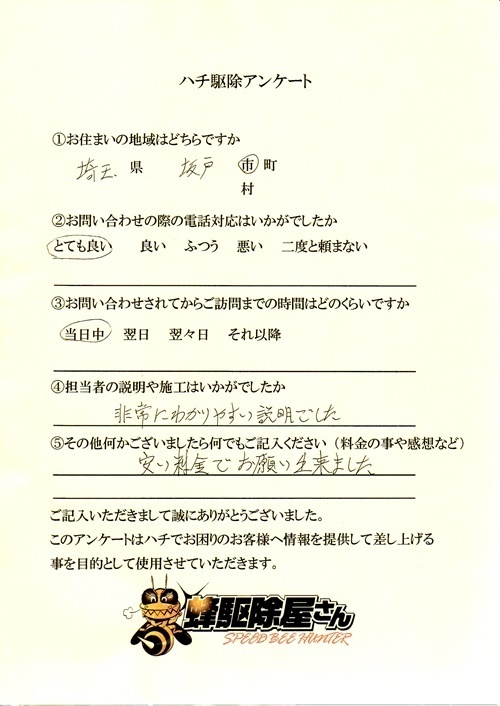 ハチ駆除アンケート
①お住まいの地域はどちらですか
埼玉 県 坂戸 市 町
村
②お問い合わせの際の電話対応はいかがでしたか
とても良い 良い ふつう 悪い 二度と頼まない
③お問い合わせされてからご訪問までの時間はどのくらいですか
当日中 翌日 翌々日 それ以降
④担当者の説明や施工はいかがでしたか
非常にわかりやすい説明でした
⑤その他何かございましたら何でもご記入ください（料金の事や感想など）
安い料金でお願い出来ました
ご記入いただきまして誠にありがとうございました。
このアンケートはハチでお困りのお客様へ情報を提供して差し上げる
事を目的として使用させていただきます。
蜂駆除屋さん
SPEED BEE HUNTER